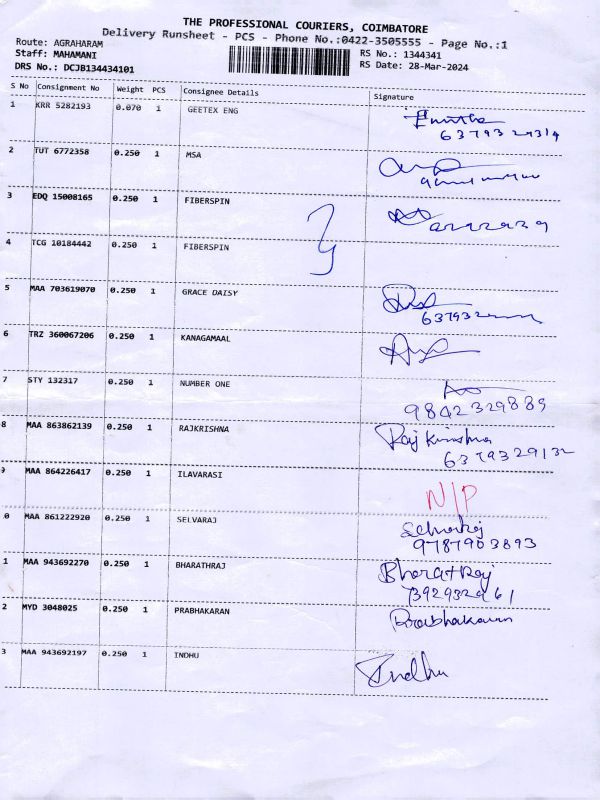 THE PROFESSIONAL COURIERS, COIMBATORE
Delivery Runsheet - PCS - Phone No.:0422-3505555 - Page No.:1
Route: AGRAHARAM
Staff: MAHAMANI
DRS No.: DCJB134434101
RS No.: 1344341
RS Date: 28-Mar-2024
S No Consignment No Weight PCS Consignee Details Signature
1 KRR 5282193 0.070 1 GEETEX ENG
2 TUT 6772358 0.250 1 MSA
3 EDQ 15008165 0.250 1 FIBERSPIN
4 TCG 10184442 0.250 1 FIBERSPIN
5 MAA 703619070 0.250 1 GRACE DAISY
6 TRZ 360067206 0.250 1 KANAGAMAAL
7 STY 132317 0.250 1 NUMBER ONE
9842329889
8 MAA 863862139 0.250 1 RAJKRISHNA Rajkrishna
6379329132
9 MAA 864226417 0.250 1 ILAVARASI N/P
0 MAA 861222920 0.250 1 SELVARAJ Selvaraj
9787903893
1 MAA 943692270 0.250 1 BHARATHRAJ Bharatraj
7392932961
2 MYD 3048025 0.250 1 PRABHAKARAN Prabhakaran
3 MAA 943692197 0.250 1 INDHU Indhu